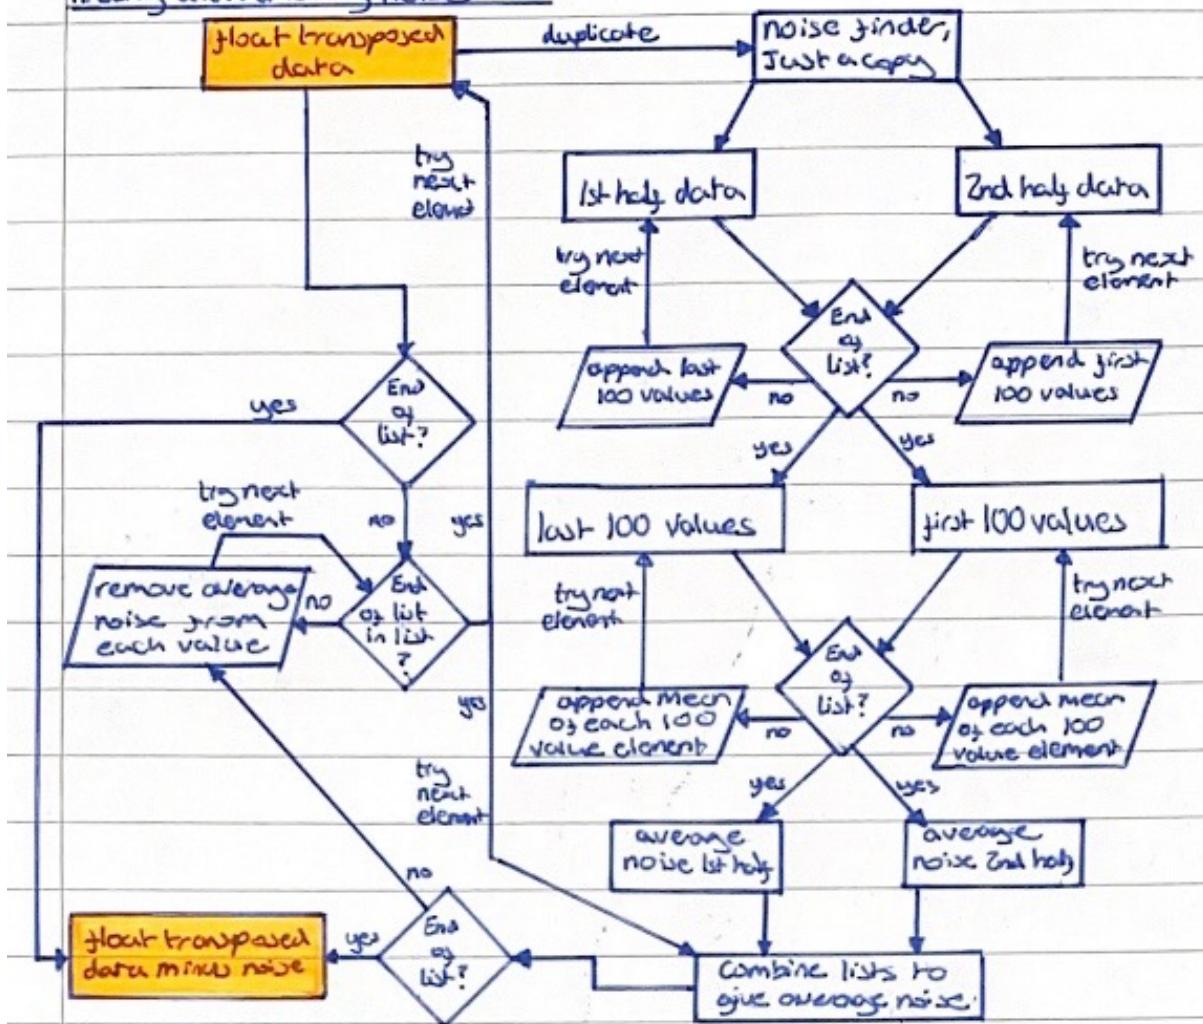 float transposed
data
duplicate
noise finder,
Just a copy
try
next
1st half data
2nd half data
try next
element
try next
element
End
of
list?
append last
100 values
no
no
append first
100 values
yes
End
of
list?
yes
yes
try next
element
no
yes
last 100 values
first 100 values
remove average
noise from
each value
no
End
of list
in list
?
try next
element
try next
element
End
of
list?
yes
append mean
of each 100
value element
no
no
append mean
of each 100
value element
try
next
element
yes
yes
average
noise 1st half
average
noise 2nd half
no
float transposed
data minus noise
yes
End
of
list?
Combine lists to
give average noise.